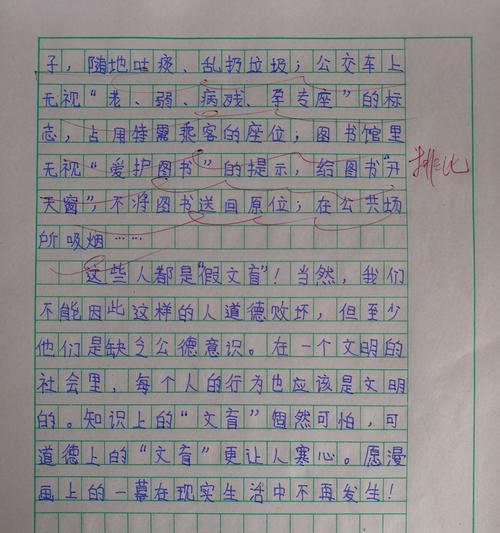 子，随地吐痰、乱扔垃圾；公交车上
无视“老、弱、病残、孕专座”的标
志，占用特需乘客的座位；图书馆里
无视“爱护图书”的提示，给图书“开
天窗”，不将图书送回原位；在公共场
所吸烟……
排比
这些人都是“假文盲”！当然，我们
不能因此这样的人道德败坏，但至少
他们是缺乏公德意识。在一个文明的
社会里，每个人的行为也应该是文明
的。知识上的“文盲”固然可怕，可
道德上的“文盲”更让人寒心。愿漫
画上的一幕在现实生活中不再发生！